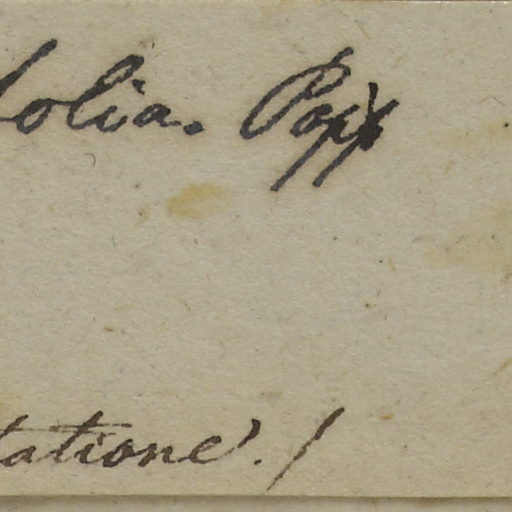 folia. Popp
tatione. /